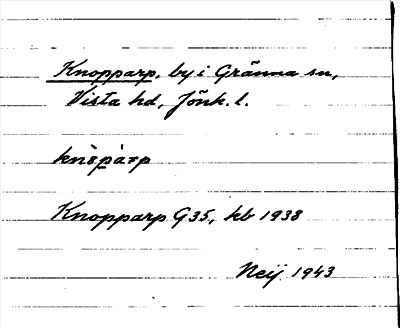 Knopparp, by i Gränna sn,
Vista hd, Jönk. l.
knòpàrp
Knopparp G35, kb 1938
Neij 1943